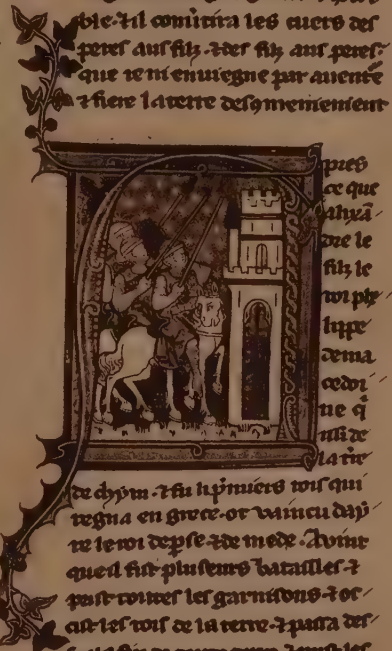 ble. ⁊ il comũtira les cuers des
peres aus filz. ⁊ des filz aus peres.
que ie ni enuiegne par auentẽ
⁊ fiere la terre des
pres
ce que
alixã
dre le
filz le
roi phe
lippe
de ma
cedoi
ne q̃
issi de
la tr̃e
de chym. ⁊ fu li p̃miers rois qui
regna en grece. ot vaincu day
re le roi de p̃se ⁊ de mede. Auint
que il fist pluseurs batailles. ⁊
prist toutes les garnisons. ⁊ oc
cist les rois de la terre. ⁊ passa des